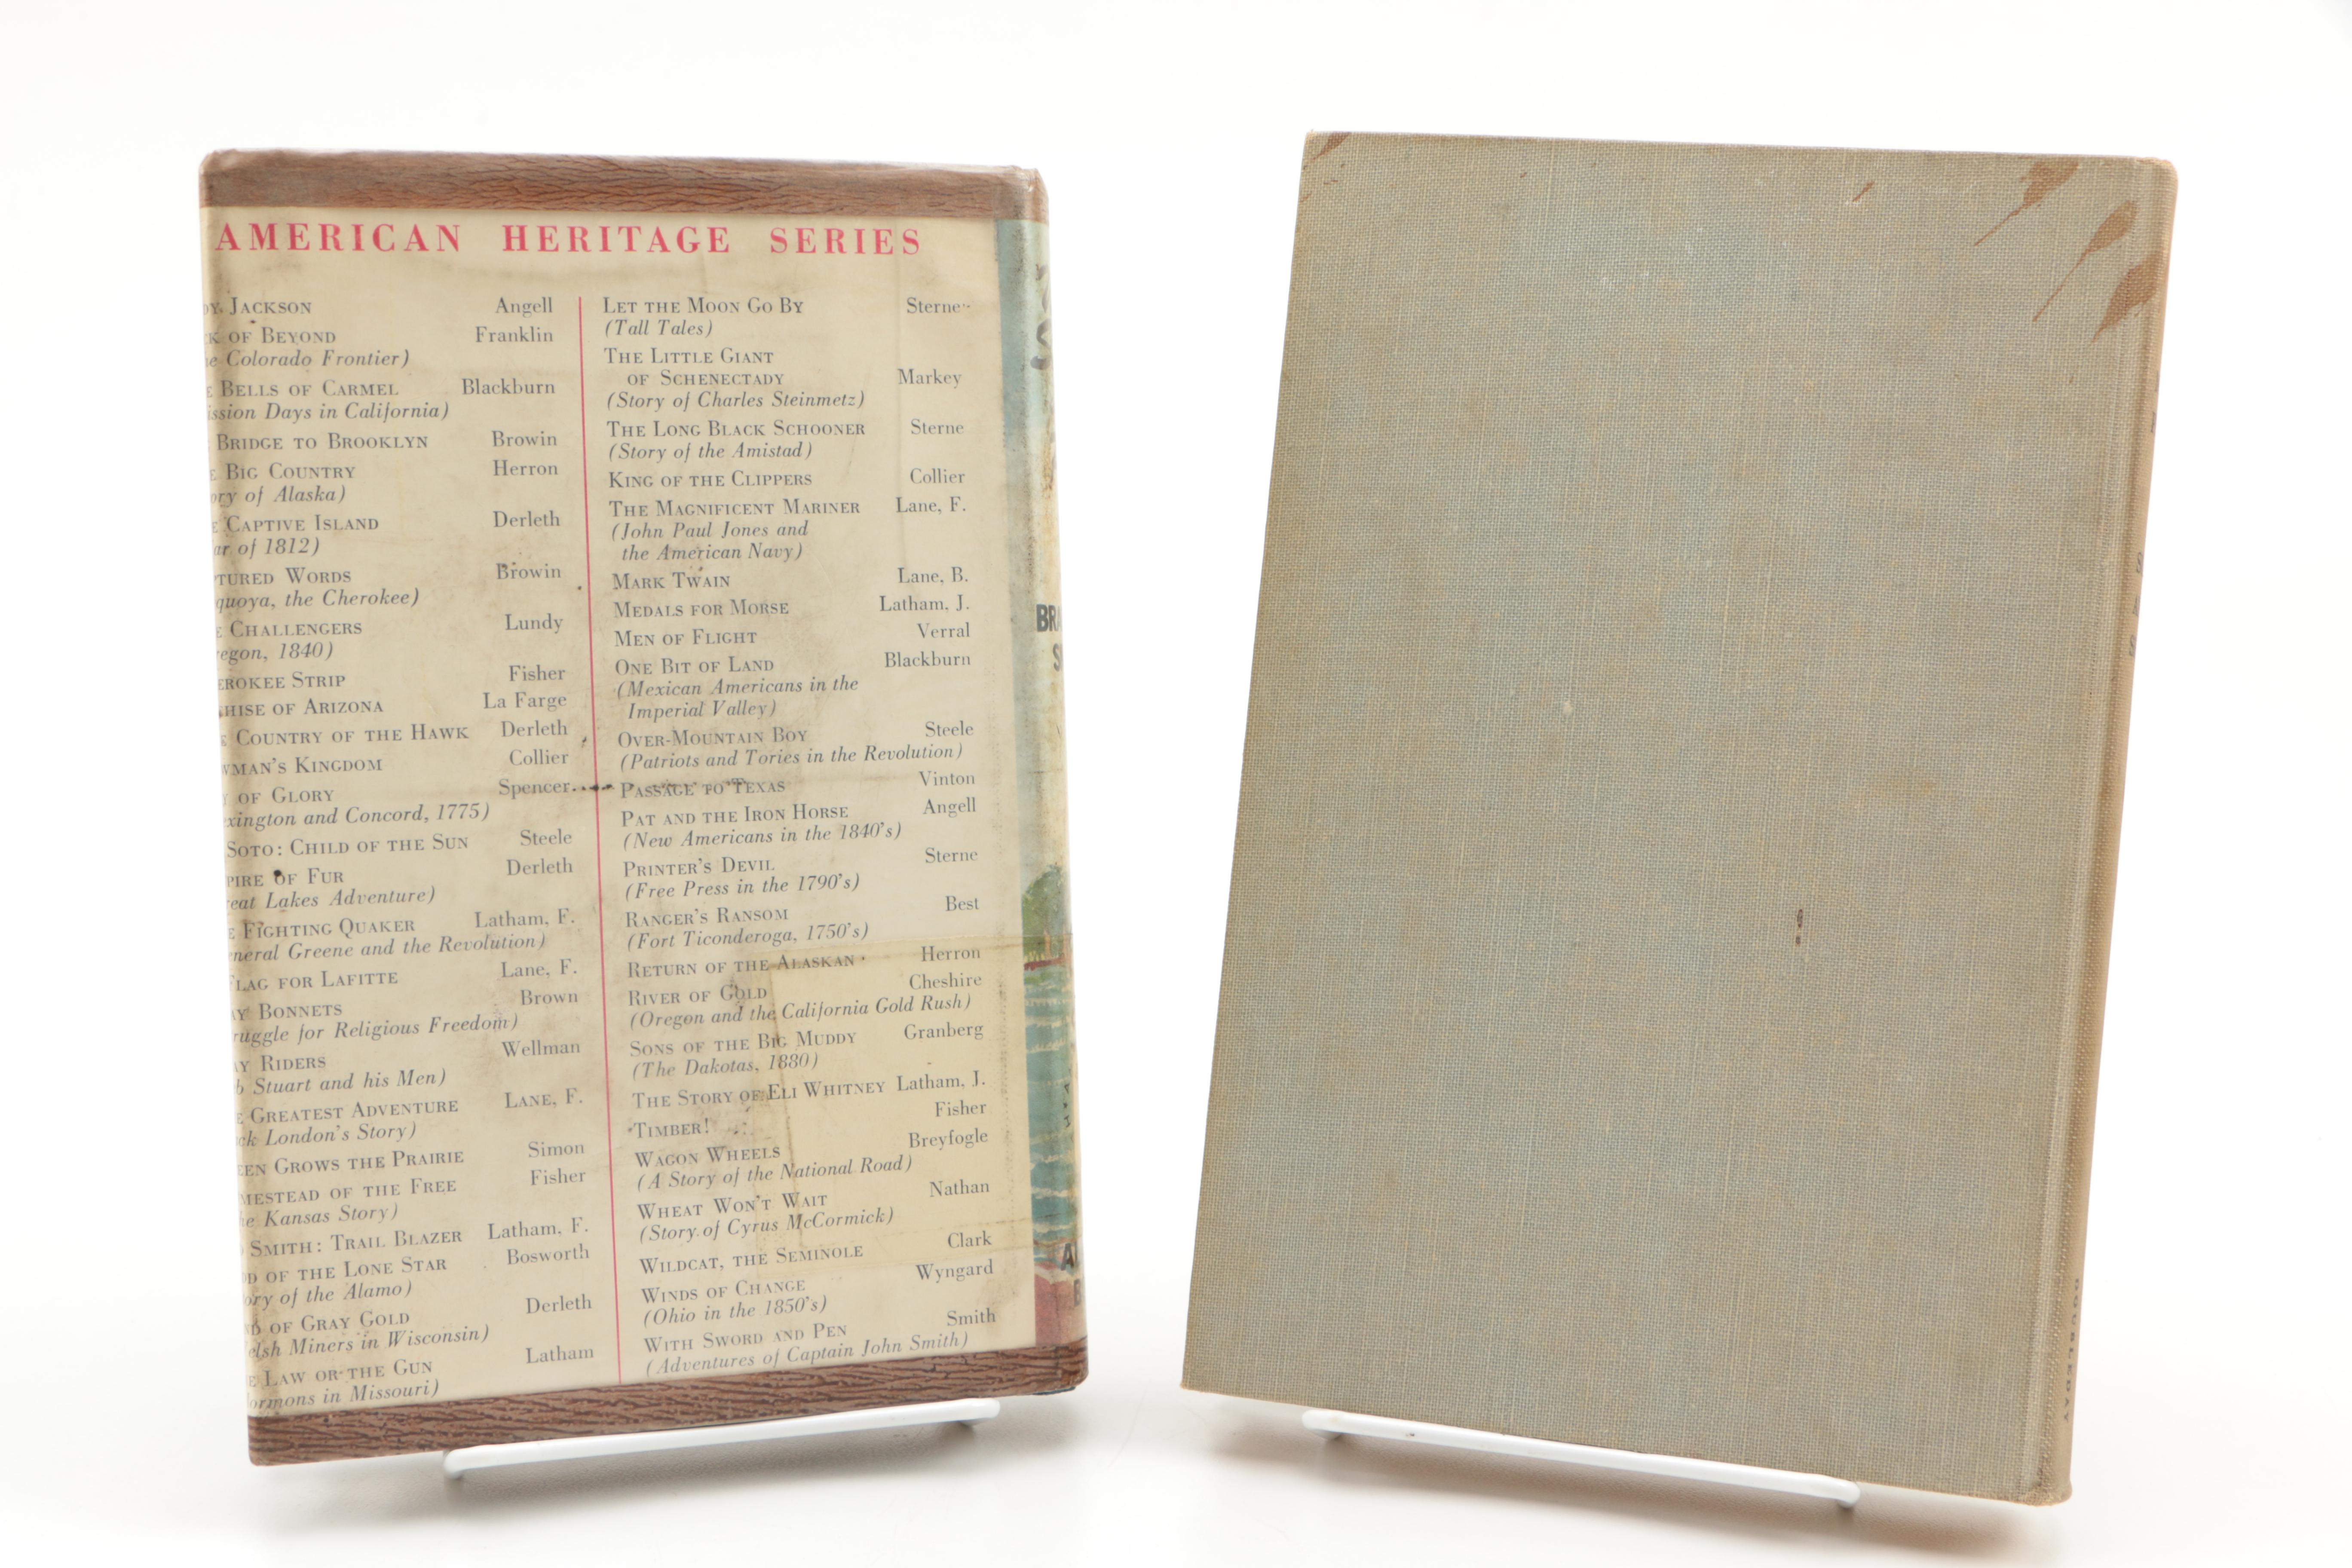 AMERICAN HERITAGE SERIES
JACKSON Angell
OF BEYOND Franklin
Colorado Frontier)
BELLS OF CARMEL Blackburn
Days in California)
BRIDGE TO BROOKLYN Browin
BIG COUNTRY Herron
of Alaska)
CAPTIVE ISLAND Derleth
of 1812)
WORDS Browin
the Cherokee)
CHALLENGERS Lundy
1840)
STRIP Fisher
OF ARIZONA La Farge
COUNTRY OF THE HAWK Derleth
KINGDOM Collier
OF GLORY Spencer
and Concord, 1775)
SOTO: CHILD OF THE SUN Steele
OF FUR Derleth
Lakes Adventure)
FIGHTING QUAKER Latham, F.
Greene and the Revolution)
FOR LAFITTE Lane, F.
BONNETS Brown
for Religious Freedom)
RIDERS Wellman
Stuart and his Men)
GREATEST ADVENTURE LANE, F.
London's Story)
GROWS THE PRAIRIE Simon
OF THE FREE Fisher
Kansas Story)
SMITH: TRAIL BLAZER Latham, F.
OF THE LONE STAR Bosworth
of the Alamo)
OF GRAY GOLD Derleth
Miners in Wisconsin)
LAW OR THE GUN Latham
in Missouri)
LET THE MOON GO BY Sterne
(Tall Tales)
THE LITTLE GIANT
OF SCHENECTADY Markey
(Story of Charles Steinmetz)
THE LONG BLACK SCHOONER Sterne
(Story of the Amistad)
KING OF THE CLIPPERS Collier
THE MAGNIFICENT MARINER Lane, F.
(John Paul Jones and
the American Navy)
MARK TWAIN Lane, B.
MEDALS FOR MORSE Latham, J.
MEN OF FLIGHT Verral
ONE BIT OF LAND Blackburn
(Mexican Americans in the
Imperial Valley)
OVER-MOUNTAIN BOY Steele
(Patriots and Tories in the Revolution)
PASSAGE TO TEXAS Vinton
PAT AND THE IRON HORSE Angell
(New Americans in the 1840's)
PRINTER'S DEVIL Sterne
(Free Press in the 1790's)
RANGER'S RANSOM Best
(Fort Ticonderoga, 1750's)
RETURN OF THE ALASKAN Herron
RIVER OF GOLD Cheshire
(Oregon and the California Gold Rush)
SONS OF THE BIG MUDDY Granberg
(The Dakotas, 1880)
THE STORY OF ELI WHITNEY Latham, J.
TIMBER! Fisher
WAGON WHEELS Breyfogle
(A Story of the National Road)
WHEAT WON'T WAIT Nathan
(Story of Cyrus McCormick)
WILDCAT, THE SEMINOLE Clark
WINDS OF CHANGE Wyngard
(Ohio in the 1850's)
WITH SWORD AND PEN Smith
(Adventures of Captain John Smith)
DOUBLEDAY